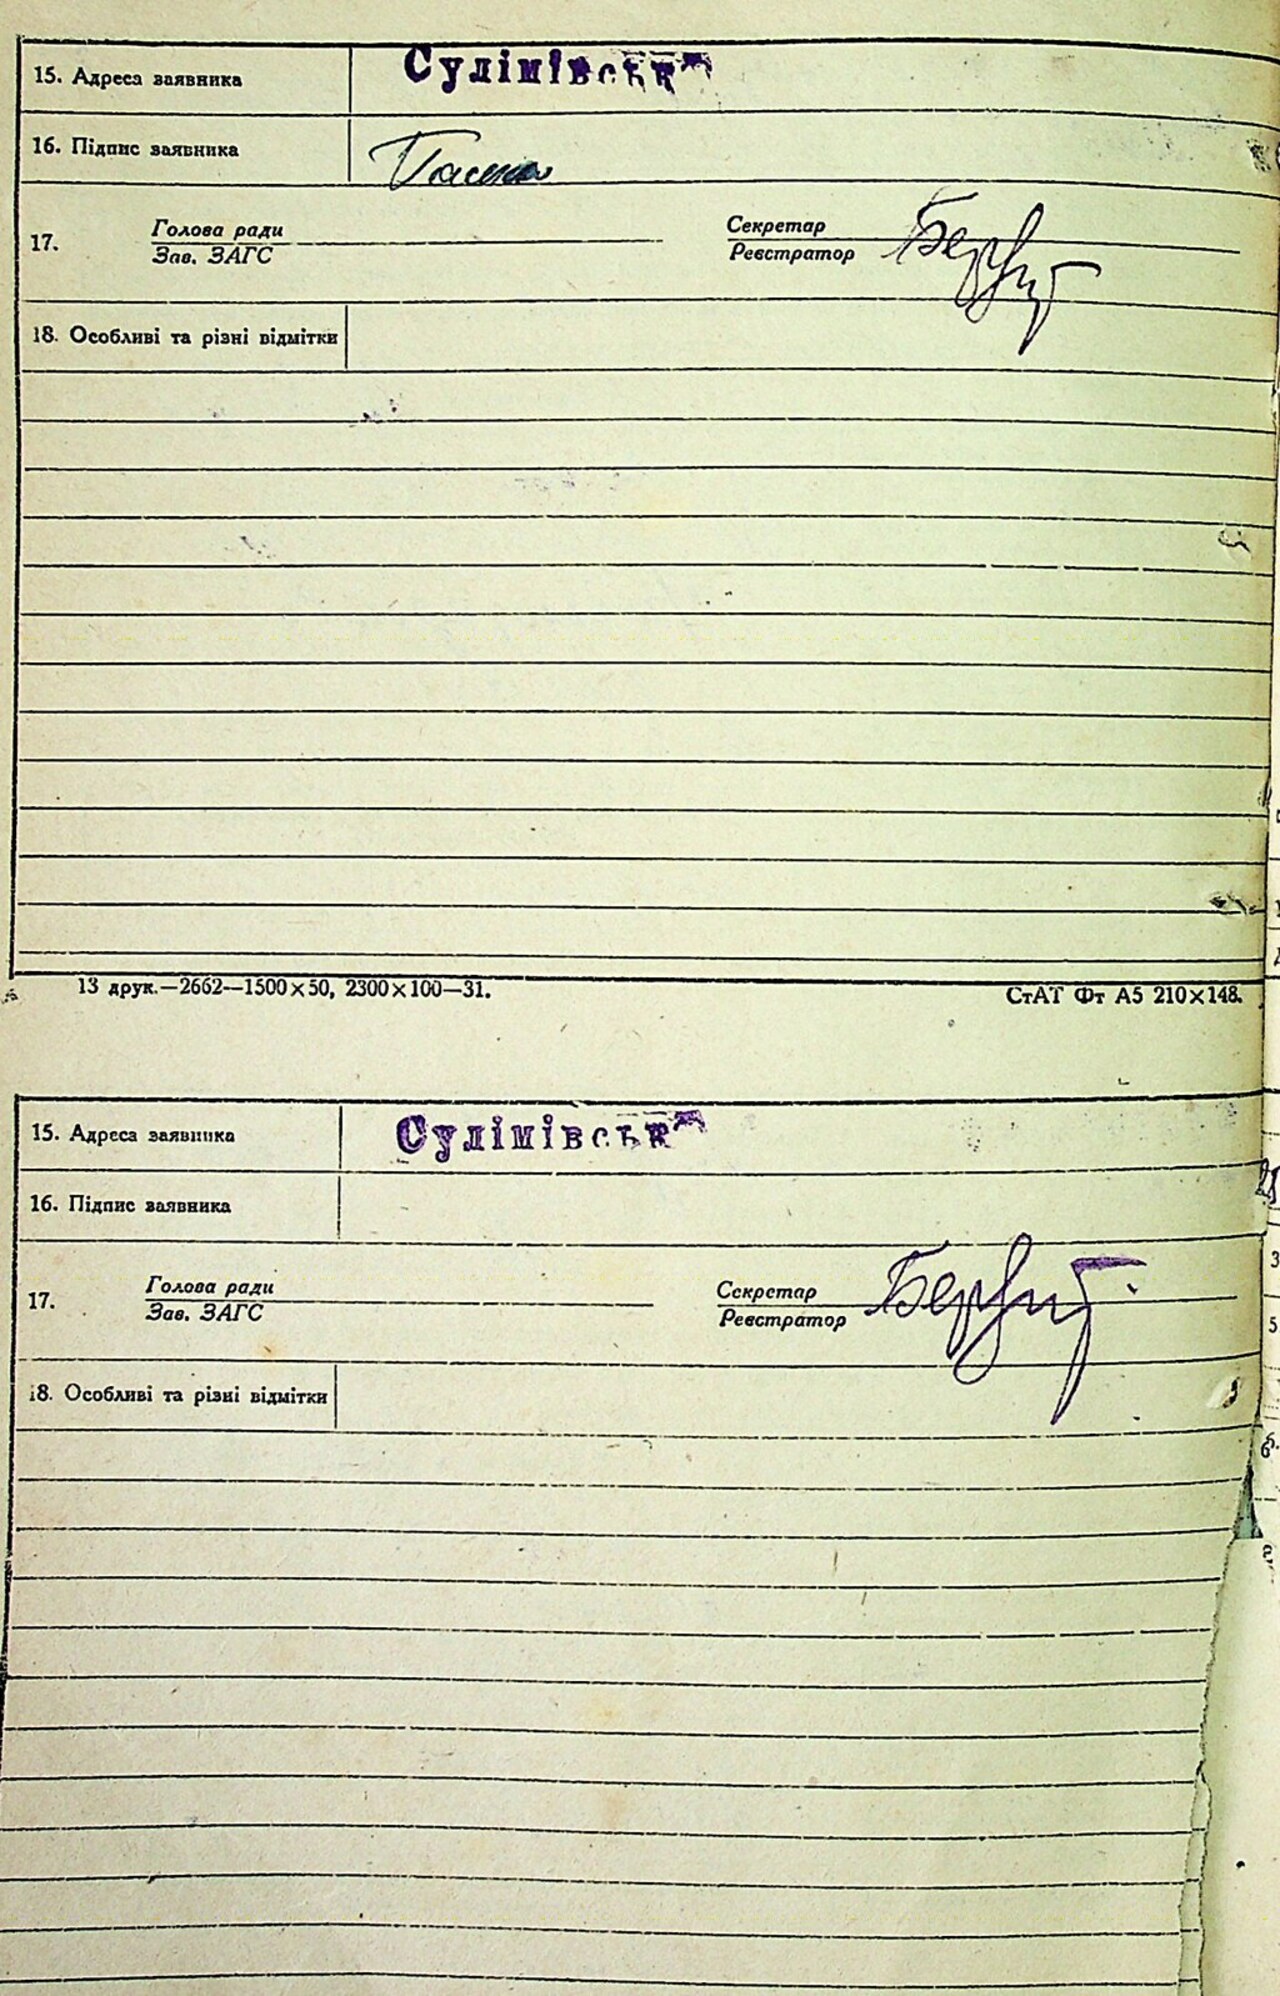 15. Адреса заявника Сулімівськ
16. Підпис заявника
17. Голова ради Секретар
Зав. ЗАГС Реєстратор
18. Особливі та різні відмітки
13 друк.—2662—1500×50, 2300×100—31. СтАТ Фт А5 210×148.
15. Адреса заявника Сулімівськ
16. Підпис заявника
17. Голова ради Секретар
Зав. ЗАГС Реєстратор
18. Особливі та різні відмітки